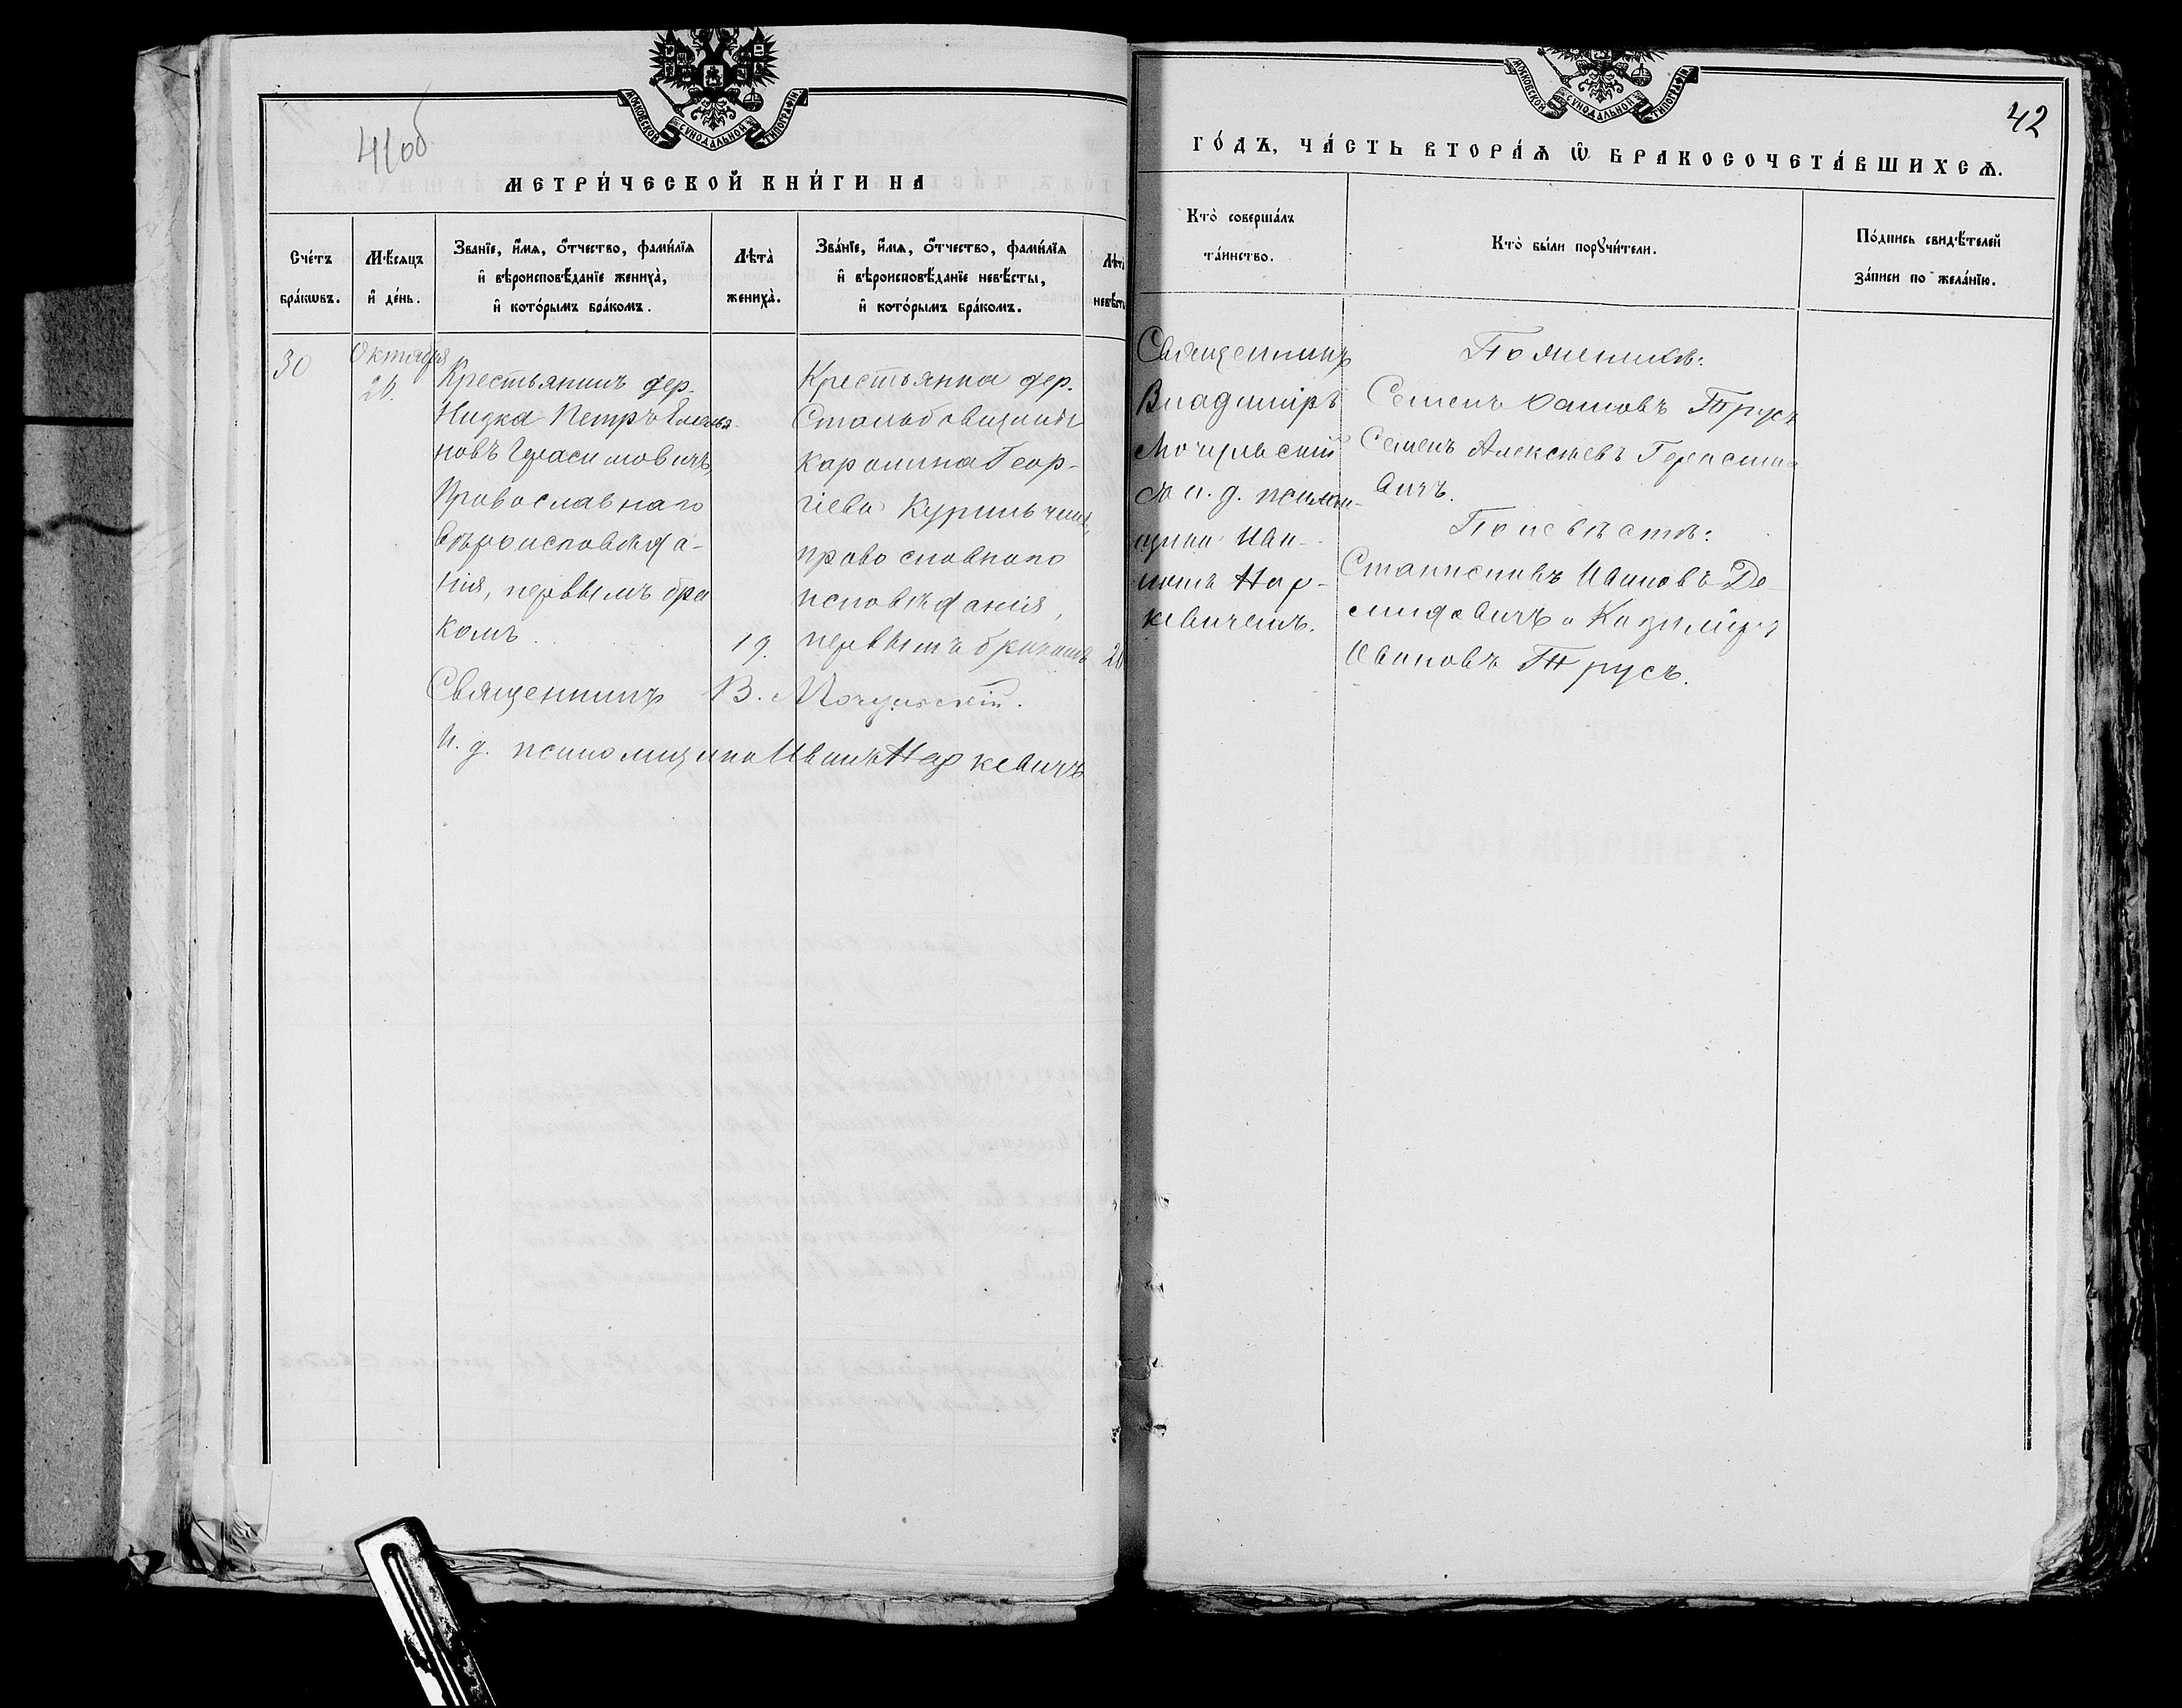 41об
МОСКОВСКОЙ СУНОДАЛЬНОЙ ТИПОГРАФІИ
МЕТРИ́ЧЕСКОЙ КНИ́ГИ НА
Сче́тъ бра́кωвъ.
Мѣ́сяцъ и҆ де́нь.
Зва́нїе, и҆́мя, ѻ҆́тчество, фами́лїя
и҆ вѣроисповѣ́данїе жениха̀,
и҆ кото́рымъ бра́комъ.
Лѣ́та̀ жениха̀.
Зва́нїе, и҆́мя, ѻ҆́тчество, фами́лїя
и҆ вѣроисповѣ́данїе невѣ́сты,
и҆ кото́рымъ бра́комъ.
Лѣта̀
невѣ́ст
30
Октября
20.
Крестьянинъ дер.
Низка Петръ Емелья-
новъ Герасимовичъ,
Православнаго
вѣроисповѣда-
нія, первымъ бра
комъ.
19.
Крестьянка дер.
Каролина Геор-
гіева
православнаго
исповѣданія,
первымъ бракомъ
20
Священникъ В. Мочульскій.
И. д. псаломщика Иванъ Наркевичъ
42
МОСКОВСКОЙ СУНОДАЛЬНОЙ ТИПОГРАФІИ
ГО́ДЪ, ЧА́СТЬ ВТОРА́Я Ѡ҆ БРАКОСОЧЕТА́ВШИХСЯ.
Кто̀ соверша́лъ
та́инство.
Кто̀ бы́ли порꙋчи́тели.
По́дпись свидѣ́телей
за́писи по жела́нїю.
Священникъ
Владиміръ
Мочульскій
съ и. д. псалом-
щика Ива-
номъ Нар-
кевичемъ.
По женихѣ:
Семенъ Трусъ
Семенъ Алексѣевъ Герасимо
вичъ.
По невѣстѣ:
Станиславъ Ивановъ Де-
мидовичъ и Казиміръ
Ивановъ Трусъ.